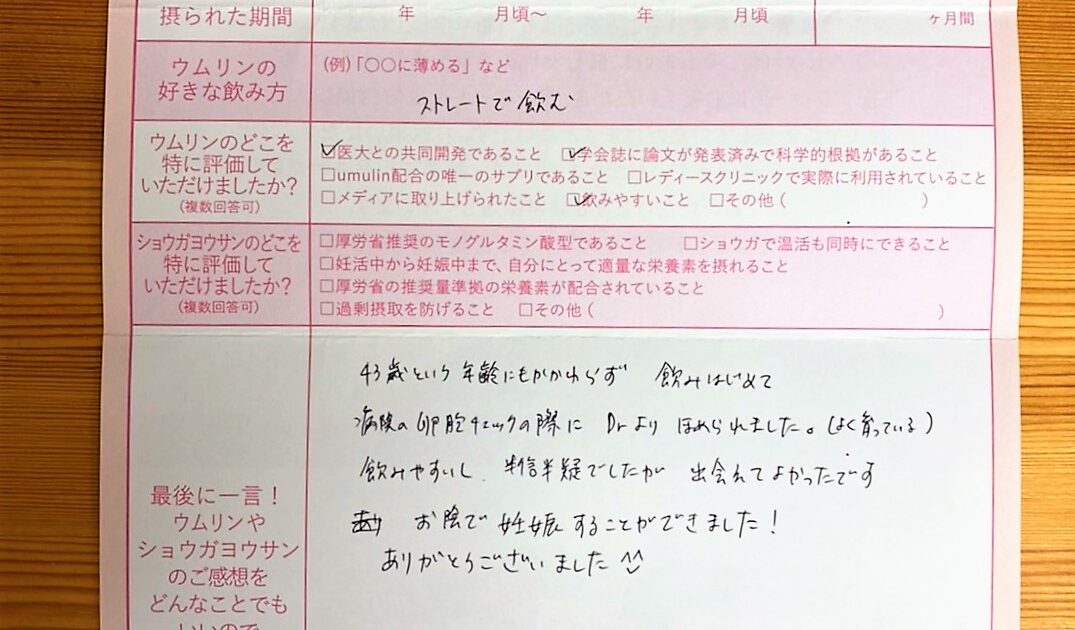 摂られた期間 年 月頃〜 年 月頃 ヶ月間
ウムリンの
好きな飲み方
(例)「〇〇に薄める」など
ストレートで飲む
ウムリンのどこを
特に評価して
いただけましたか?
(複数回答可)
☑医大との共同開発であること ☑学会誌に論文が発表済みで科学的根拠があること
□umulin配合の唯一のサプリであること □レディースクリニックで実際に利用されていること
□メディアに取り上げられたこと ☑飲みやすいこと □その他( )
ショウガヨウサンのどこを
特に評価して
いただけましたか?
(複数回答可)
□厚労省推奨のモノグルタミン酸型であること □ショウガで温活も同時にできること
□妊活中から妊娠中まで、自分にとって適量な栄養素を摂れること
□厚労省の推奨量準拠の栄養素が配合されていること
□過剰摂取を防げること □その他( )
最後に一言!
ウムリンや
ショウガヨウサン
のご感想を
どんなことでも
いいので
43歳という年齢にもかかわらず 飲みはじめて
病院の卵胞チェックの際に Drより ほめられました。(よく育っている)
飲みやすいし、半信半疑でしたが 出会えてよかったです
お陰で妊娠することができました!
ありがとうございました^^